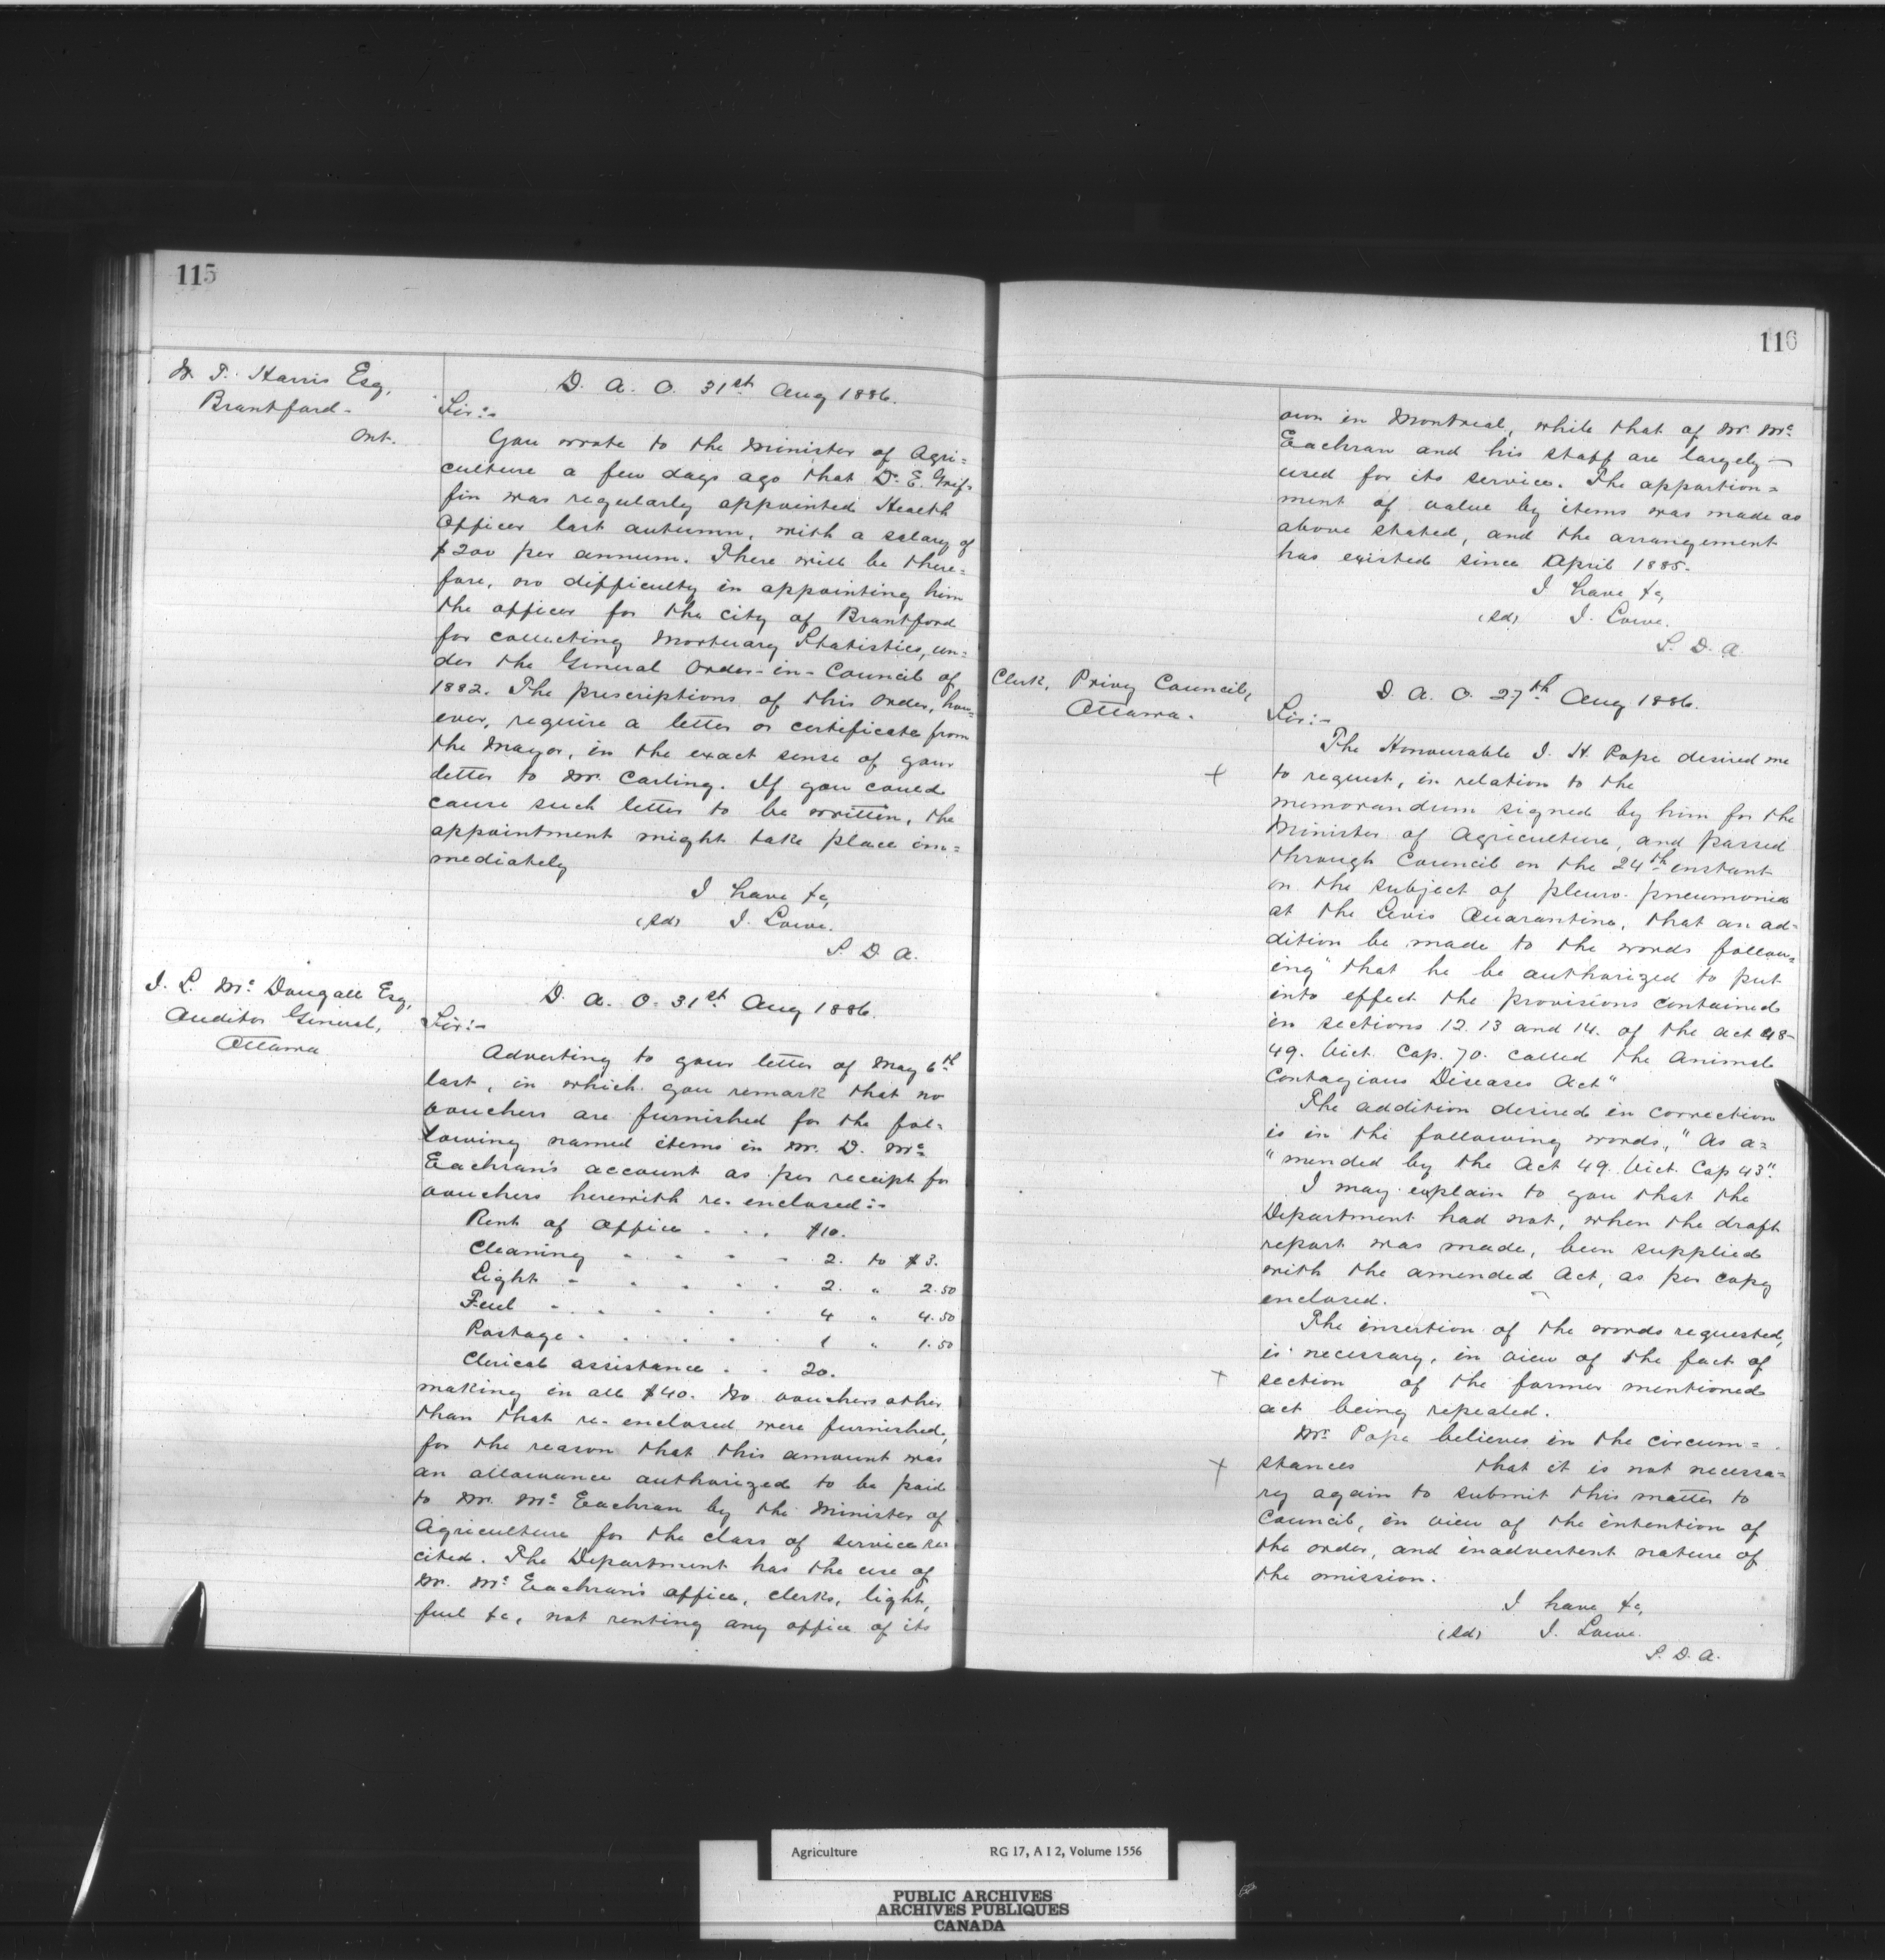 115
W. T. Harris Esq,
Brantford-
Ont.
D. A. O. 31st Aug 1886.
Sir:-
You wrote to the Minister of Agri=
culture a few days ago that Dr. E. Grif-
fin was regularly appointed Health
Officer last autumn, with a salary of
$200 per annum. There will be there=
fore, no difficulty in appointing him
the officer for the city of Brantford
for collecting Mortuary Statistics, un=
der the General Order-in-Council of
1882. The prescriptions of this Order, how=
ever, require a letter or certificate from
the Mayor, in the exact sense of your
letter to Mr. Carling. If you could
cause such letter to be written, the
appointment might take place im=
mediately
I have &c,
(Sd) J. Lowe.
S. D. A.
J. L. McDougall Esq,
Auditor General,
Ottawa
D. A. O. 31st Aug 1886.
Sir:-
Adverting to your letter of May 6th
last, in which you remark that no
vouchers are furnished for the fol=
lowing named items in Mr. D. Mc
Eachran's account as per receipt for
vouchers herewith re-enclosed:-
Rent of Office . . . $10.
Cleaning - - - - 2. to $3.
Light - . . . . 2. " 2.50
Fuel - . . . . 4 " 4.50
Postage . . . . . 1 " 1.50
Clerical assistance . . 20.
making in all $40. No vouchers other
than that re-enclosed were furnished,
for the reason that this amount was
an allowance authorized to be paid
to Mr. Mc Eachran by the Minister of
Agriculture for the class of service re-
cited. The Department has the use of
Mr. Mc Eachran's office, clerks, light,
fuel &c, not renting any office of its
116
own in Montreal, while that of Mr. Mc
Eachran and his staff are largely
used for its service. The apportion=
ment of value by items was made as
above stated, and the arrangement
has existed since April 1885.
I have &c,
(Sd) J. Lowe.
S. D. A.
Clerk, Privy Council,
Ottawa.
D. A. O. 27th Aug 1886.
Sir:-
The Honourable J. H. Pope desired me
+ to request, in relation to the
memorandum signed by him for the
Minister of Agriculture, and passed
through Council on the 24th instant
on the subject of pleuro-pneumonia
at the Levis Quarantine, that an ad-
dition be made to the words follow=
ing "that he be authorized to put
into effect the provisions contained
in sections 12. 13 and 14. of the act 48-
49. Vict. Cap. 70. called the Animal
Contagious Diseases Act"
The addition desired in correction
is in the following words, "As a=
"mended by the Act 49. Vict. Cap 43".
I may explain to you that the
Department had not, when the draft
report was made, been supplied
with the amended Act, as per copy
enclosed.
The insertion of the words requested,
is necessary, in view of the fact of
+ section of the former mentioned
act being repealed.
Mr. Pope believes in the circum=
+ stances that it is not necessa=
ry again to submit this matter to
Council, in view of the intention of
the order, and inadvertent nature of
the omission.
I have &c,
(Sd) J. Lowe.
S. D. A.
Agriculture RG 17, A I 2, Volume 1556
PUBLIC ARCHIVES
ARCHIVES PUBLIQUES
CANADA